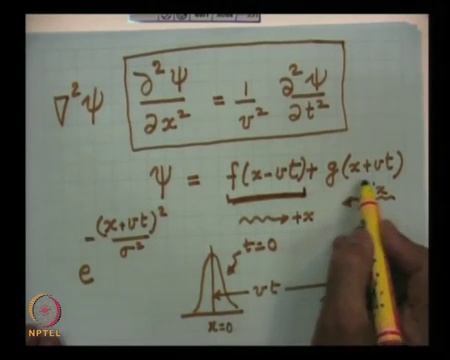 ∇²ψ ∂²ψ/∂x² = 1/v² ∂²ψ/∂t²
ψ = f(x-vt) + g(x+vt)
→ +x
x
e^-(x+vt)²/σ²
t=0
vt
x=0
NPTEL